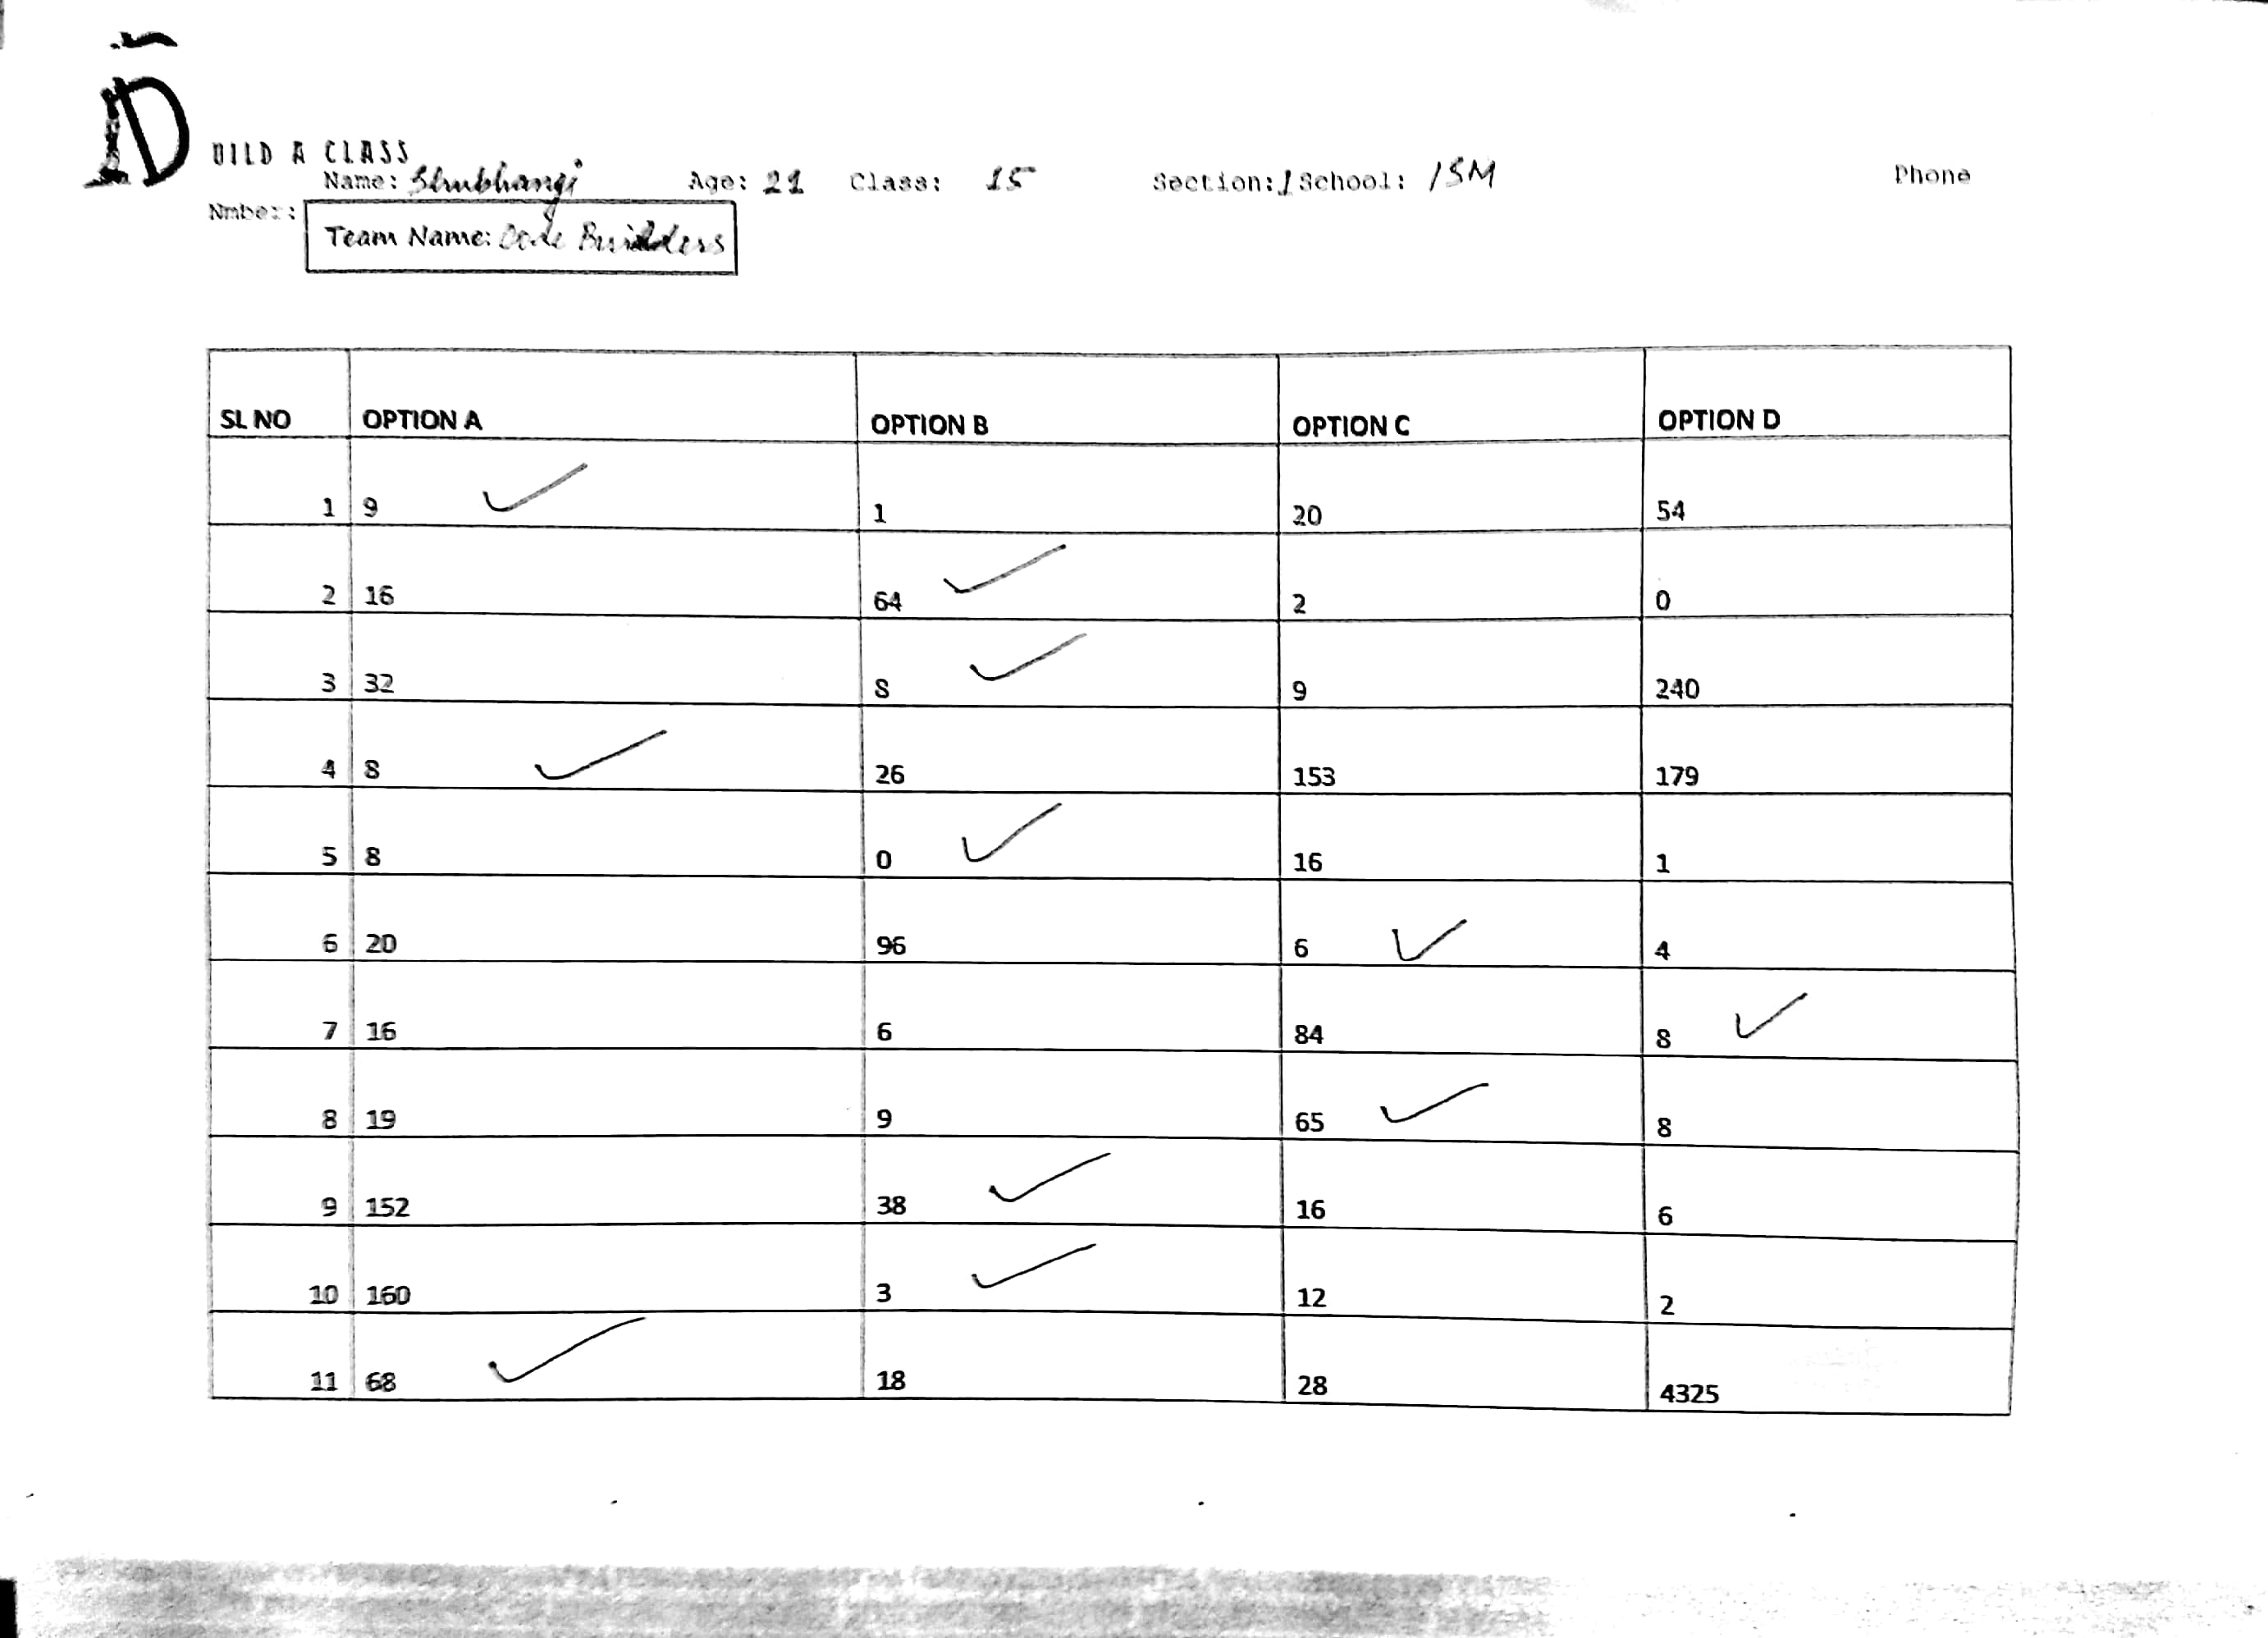 D
UILD A CLASS
Name: Shubhangi Age: 21 Class: 15 Section: 1 School: ISM Phone
Nmber:
Team Name: Code Builders
SL NO OPTION A OPTION B OPTION C OPTION D
1 9 ✓ 1 20 54
2 16 64 ✓ 2 0
3 32 8 ✓ 9 240
4 8 ✓ 26 153 179
5 8 0 ✓ 16 1
6 20 96 6 ✓ 4
7 16 6 84 8 ✓
8 19 9 65 ✓ 8
9 152 38 ✓ 16 6
10 160 3 ✓ 12 2
11 68 ✓ 18 28 4325